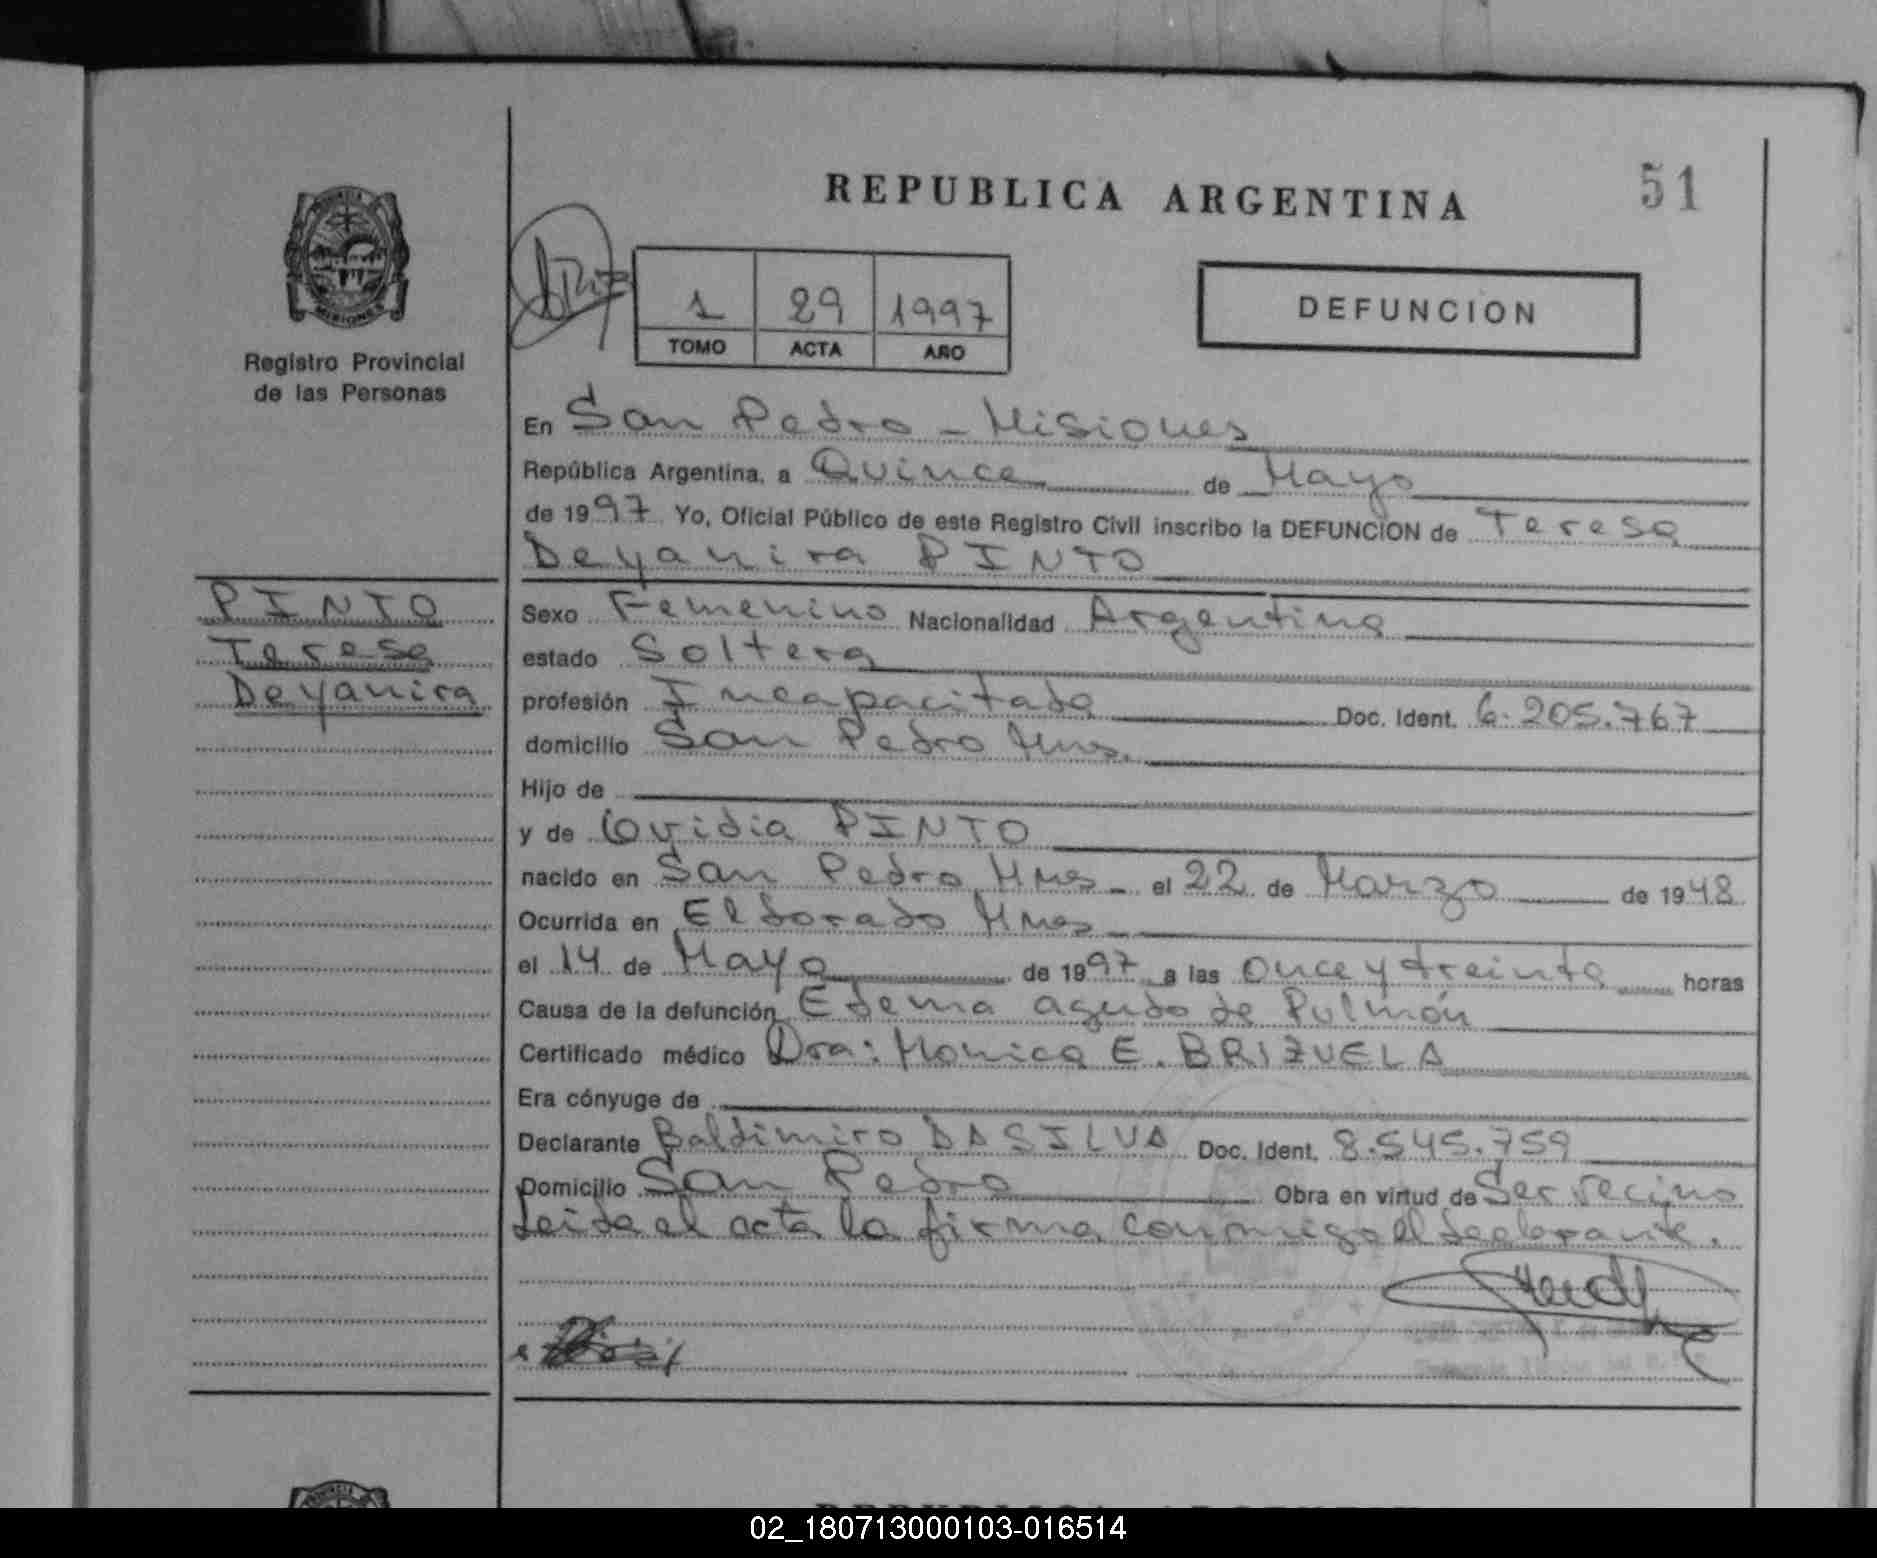 REPUBLICA ARGENTINA
51
PROVINCIA
MISIONES
Registro Provincial
de las Personas
1 29 1997
TOMO ACTA AÑO
DEFUNCION
En San Pedro - Misiones
República Argentina, a Quince de Mayo
de 1997 Yo, Oficial Público de este Registro Civil inscribo la DEFUNCION de Teresa
Deyanira PINTO
PINTO
Teresa
Deyanira
Sexo Femenino Nacionalidad Argentina
estado Soltera
profesión Incapacitada Doc. Ident. 6.205.767
domicilio San Pedro Mnes.
Hijo de
y de Ovidia PINTO
nacido en San Pedro Mnes el 22 de Marzo de 1948
Ocurrida en Eldorado Mnes
el 14 de Mayo de 1997 a las Once y treinta horas
Causa de la defunción Edema agudo de Pulmón
Certificado médico Dra: Monica E. BRIZUELA
Era cónyuge de
Declarante Baldimiro DA SILVA Doc. Ident. 8.545.759
Domicilio San Pedro Obra en virtud de Ser vecino
Leida el acta la firma conmigo el declarante.
REPUBLICA ARGENTINA
02_180713000103-016514